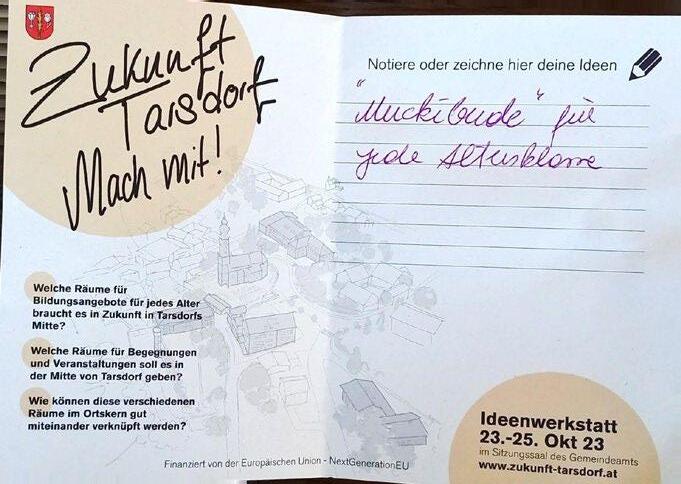 Zukunft
Tarsdorf
Mach mit!
Welche Räume für
Bildungsangebote für jedes Alter
braucht es in Zukunft in Tarsdorfs
Mitte?
Welche Räume für Begegnungen
und Veranstaltungen soll es in
der Mitte von Tarsdorf geben?
Wie können diese verschiedenen
Räume im Ortskern gut
miteinander verknüpft werden?
Finanziert von der Europäischen Union - NextGenerationEU
Notiere oder zeichne hier deine Ideen
"Muckibude" für
jede Altersklasse
Ideenwerkstatt
23.-25. Okt 23
im Sitzungssaal des Gemeindeamts
www.zukunft-tarsdorf.at